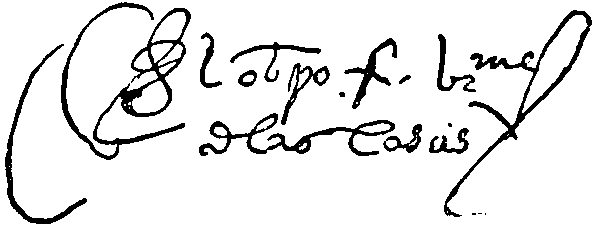 El obpo. f. brme
de las casas